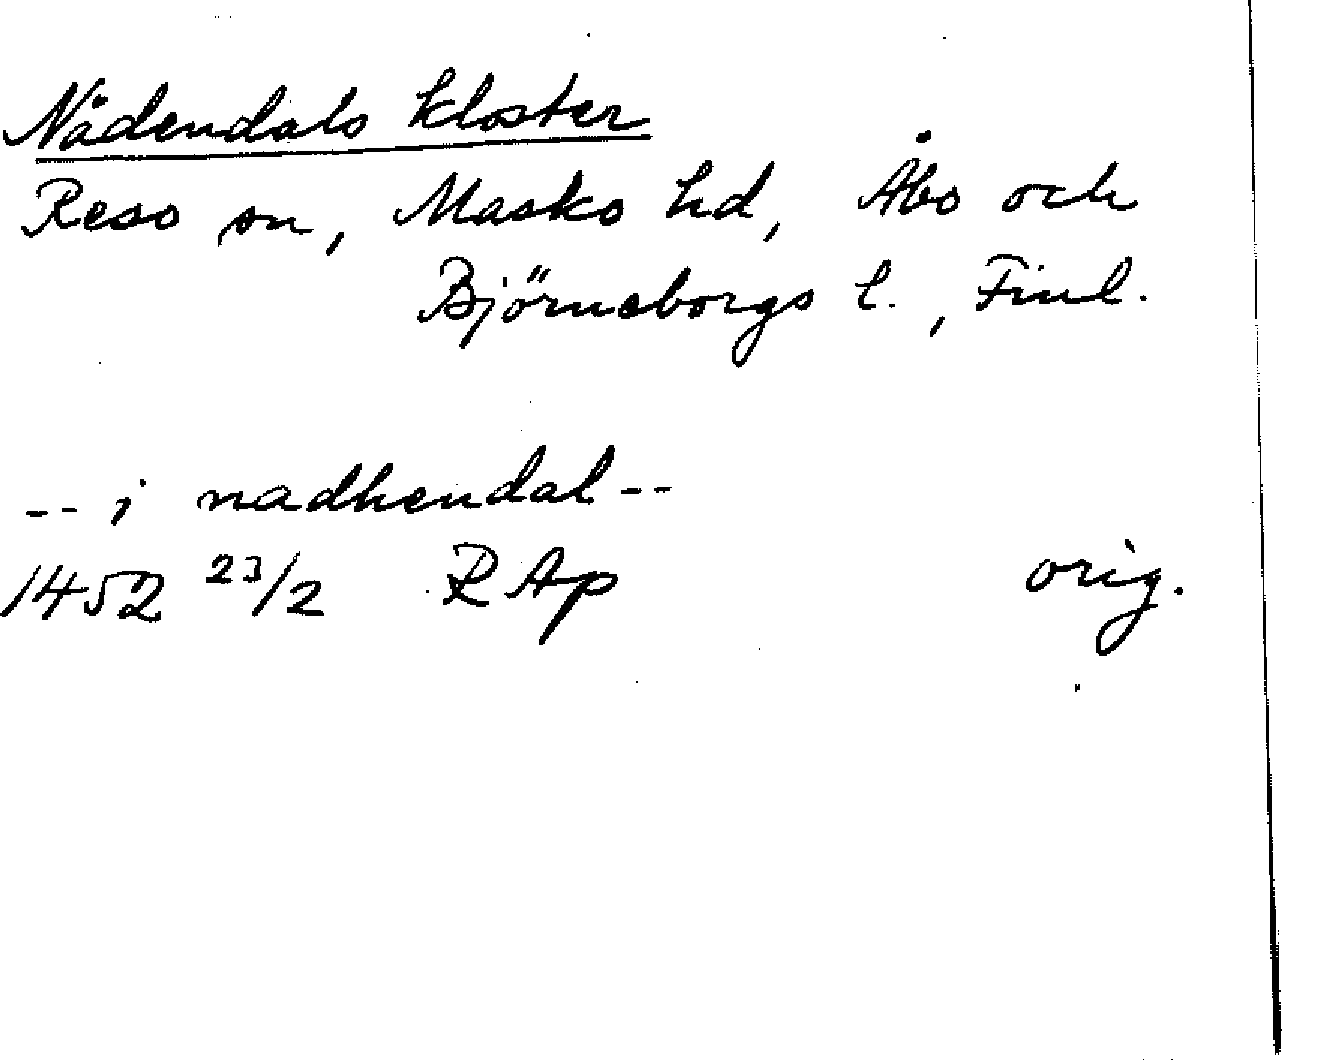 Nådendals kloster
Reso sn, Masko hd, Åbo och
Björneborgs l., Finl.
-- i nadhendal --
1452 23/2 RAp orig.